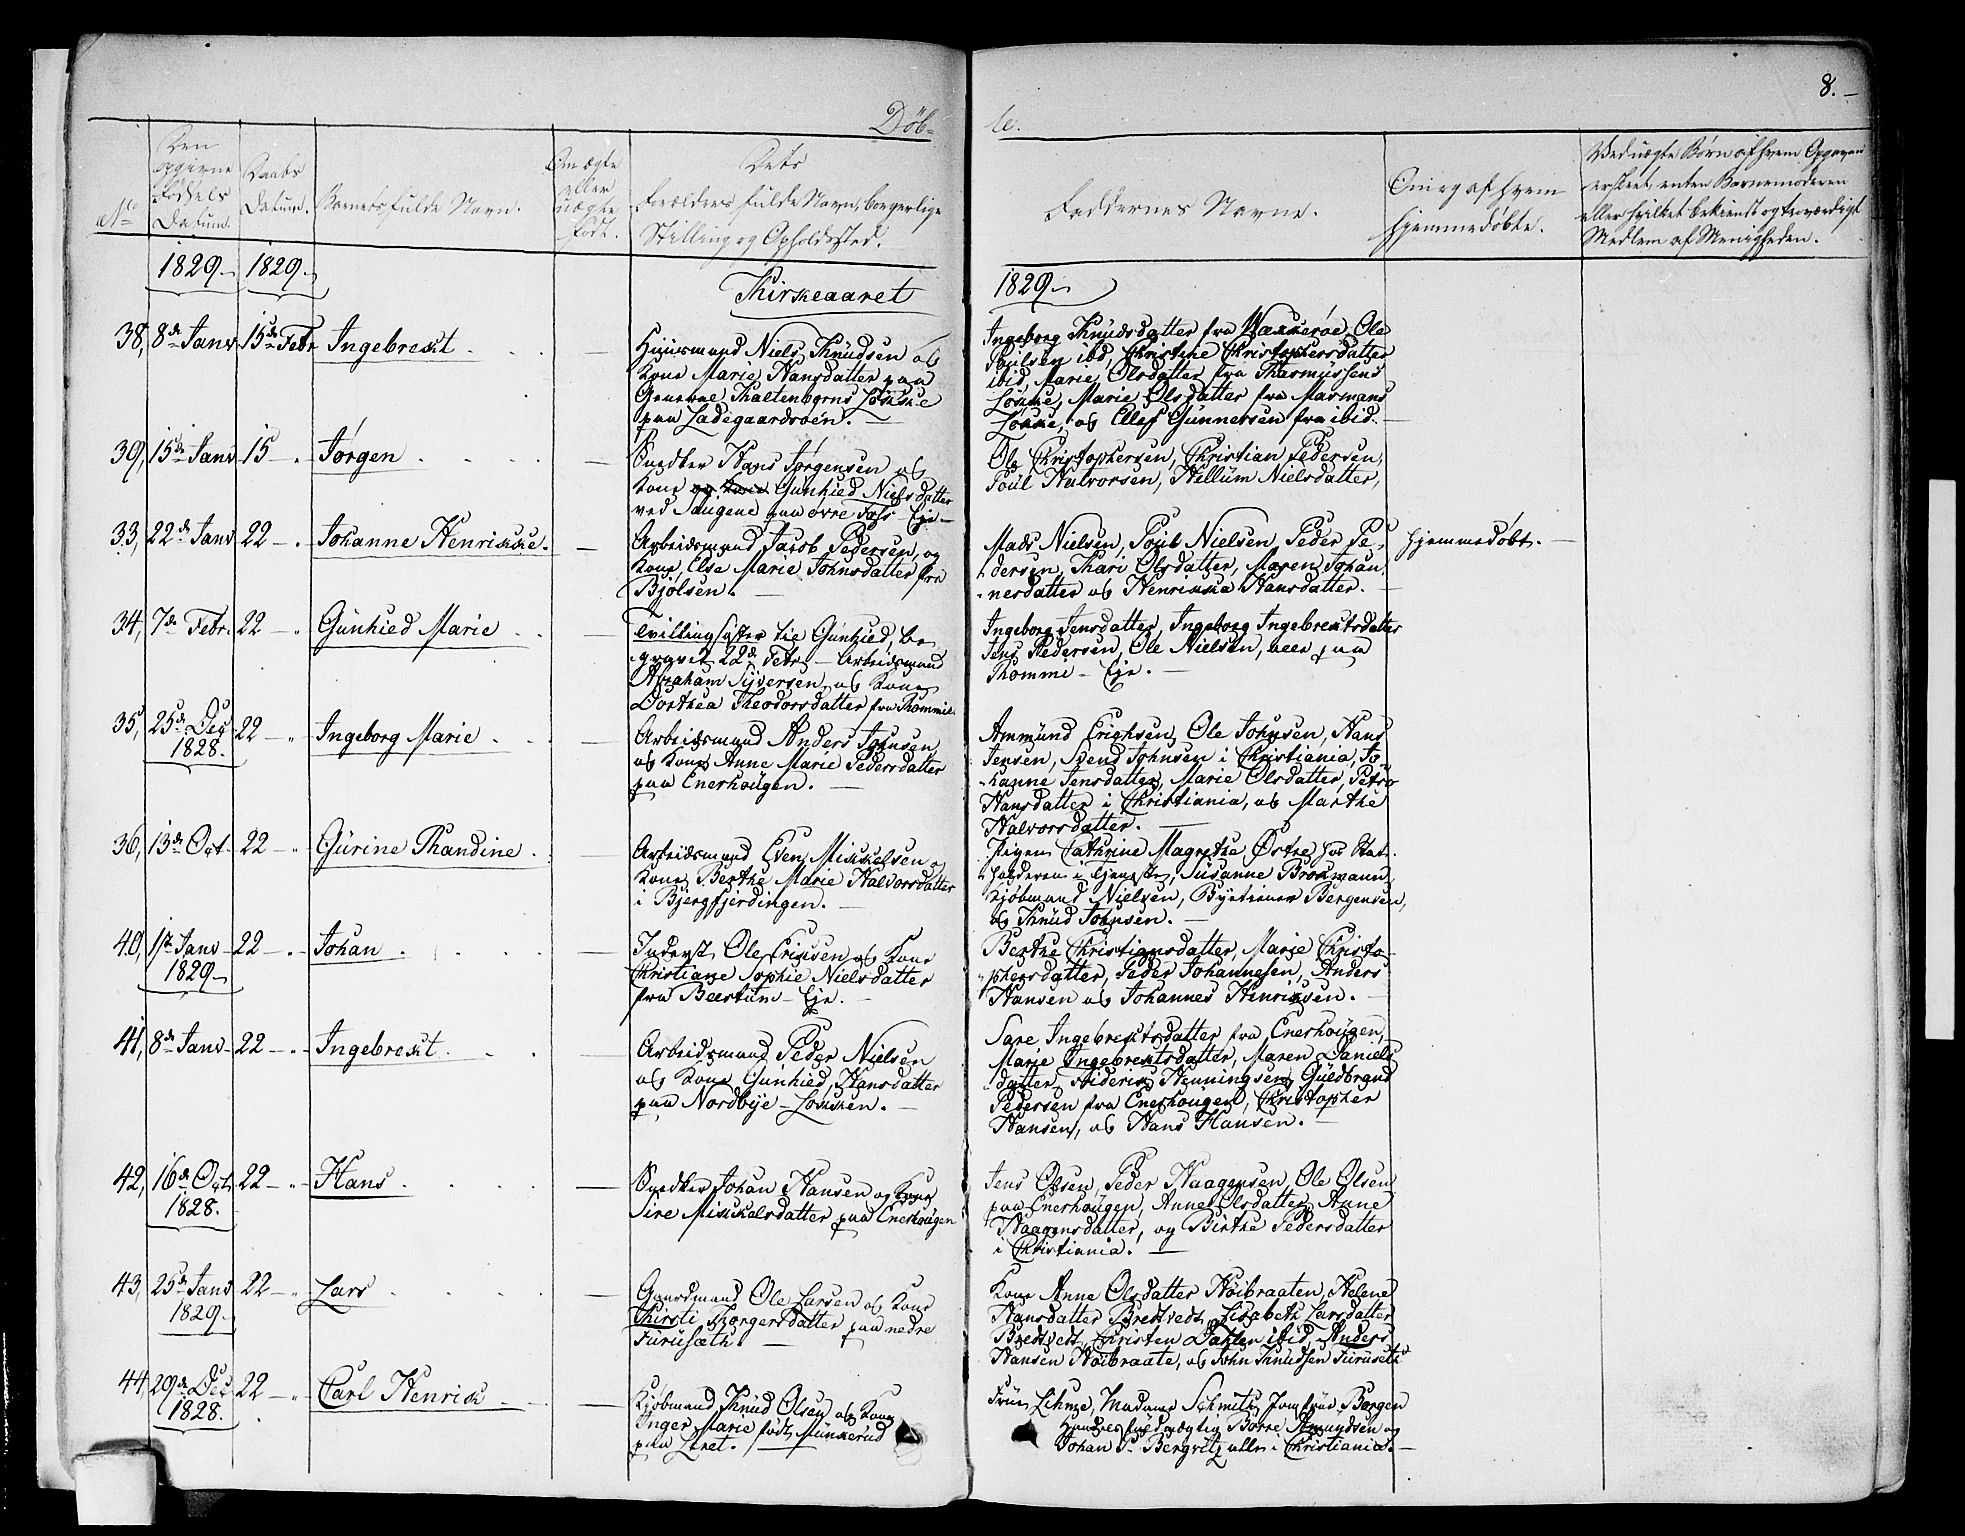 8.
Döb-
te.
No
Den opgivne Fødsels Datum.
Daabs Datum.
Barnets fulde Navn.
Om ægte eller uægte født.
Dets Forældres fulde Navn, borgerlige Stilling og Opholdssted.
Faddernes Navne.
Om og af hvem hjemmedøbte.
Ved uægte Børn af hvem Opgaven er skeet, enten Barnemoderen eller hvilket bekiendt og troværdigt Medlem af Menigheden.
1829 1829
Kirkeaaret
1829
38, 8de Janv 15de Febr Ingebreckt
Huusmand Niels Knudsen og
Kone Marie Hansdatter paa
General Kaltenborns Løkke
paa Ladegaardsøen.
Ingeborg Knudsdatter fra Wækkerøe, Ole
Poulsen ibd, Christine Christophersdatter
ibid, Marie Olsdatter fra Rasmussens
Løkke, Marie Olsdatter fra Marmans
Løkke, og Ellef Gunnersen fra ibid.
39, 15de Janv 15 Jørgen
Snedker Hans Jørgensen og
Kone Gunhied Nielsdatter
ved Saugene paa øvre Foss Eje
Ole Christophersen, Christian Pedersen,
Poul Halvorsen, Hellum Nielsdatter,
33, 22de Janv 22 Johanne Henrikke.
Arbeidsmand Jacob Pedersen, og
Kone Else Marie Johnsdatter fra
Bjølsen.
Mads Nielsen, Poul Nielsen, Peder Pe-
dersen, Kari Olsdatter, Maren Johan-
nesdatter og Henrikka Hansdatter.
hjemmedøbt.
34, 7de Febr. 22 Gunhied Marie
Tvillingsøster til Gunhied, be-
gravet 22de Febr. Arbeidsmand
Abraham Syversen og Kone
Dorthea Theodorsdatter fra Rommie
Ingeborg Jensdatter, Ingeborg Ingebrektsdatter
Jens Pedersen, Ole Nielsen, alle paa
Rommi Eje.
35, 25de Dec 1828. 22 Ingeborg Marie
Arbeidsmand Anders Johnsen
og Kone Anne Marie Pedersdatter
paa Enerhougen.
Ammund Erichsen, Ole Johnsen, Hans
Jensen, Svend Johnsen i Christiania, Jo-
hanne Jensdatter, Marie Olsdatter, Petra
Hansdatter i Christiania, og Marthe
Halvorsdatter.
36, 13de Oct. 22 Gurine Randine
Arbeidsmand Even Mikkelsen og
Kone Berthe Marie Halvorsdatter
i Bjergfjerdingen.
Pigen Cathrine Magrethe Østre hos Stat-
holderen i Tjeneste, Susanne Brokmann,
Kjøbmand Nielsen, Bergensen,
og Knud Johnsen.
40, 1ste Janv 1829 22 Johan
Inderst Ole Eriksen og Kone
Christiane Sophie Nielsdatter
fra Beerum Eje.
Berthe Christiansdatter, Marie Christo-
phersdatter, Peder Johannesen, Anders
Hansen og Johannes Henriksen.
41, 8de Janv 22 Ingebreckt
Arbeidsmand Peder Nielsen
og Kone Gunhied Hansdatter
paa Nordbye-Løkken.
Sare Ingebrektsdatter fra Enerhougen,
Marie Ingebrektsdatter, Maren Daniels-
datter, Friderik Henningsen, Guldbrand
Pedersen fra Enerhougen, Christopher
Hansen, og Hans Hansen.
42, 16de Oct. 1828. 22 Hans
Snedker Johan Hansen og Kone
Sire Mikkelsdatter paa Enerhougen
Jens Olsen, Peder Haagensen, Ole Olsen
paa Enerhougen, Anne Olsdatter, Anne
Haagensdatter, og Birthe Pedersdatter
i Christiania.
43, 25de Janv 1829 22 Lars
Gaardmand Ole Larsen og Kone
Kirsti Torgersdatter paa nedre
Furusæth.
Kone Anne Olsdatter Høibraaten, Helene
Hansdatter Bredtvedt, Lisabeth Larsdatter
Bredtvedt, Christen Dahlen ibid, Anders
Hansen Høibraate, og John Knudsen Furuseth
44, 29de Dec 1828. 22 Carl Henrik
Kjøbmand Knud Olsen og Kone
Inger Marie født Munkerud
paa Leret.
Frue Lihme, Madame Schmith, Jomfrue Borgen
Børre Amundsen og
Johan P. Bergvitz alle i Christiania.